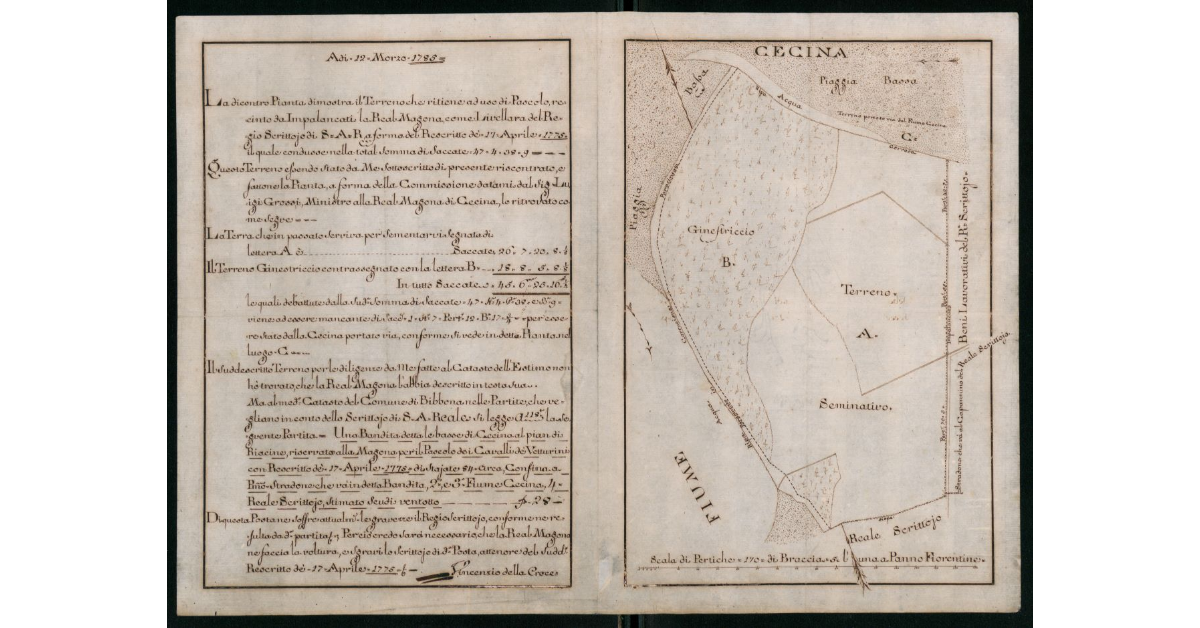 Adi 12 Marzo 1785
La dicontro Pianta dimostra il Terreno che ritiene ad uso di Pascolo, re-
cinto da Impalancati la Real Magona, come Livellara del Re-
gio Scrittojo di S. A. R. a forma del Rescritto de 17 Aprile 1775
il quale conduсe nella total somma di Saccate 47. 4. 38. 9
Questo Terreno essendo stato da Me sottoscritto di presente riscontrato, e
fattone la Pianta, a forma della Commissione datami dal Sig. Lu-
igi Grossi, Ministro alla Real Magona di Cecina, lo ritrovato co-
me segue
La Terra che in passato serviva per sementarvi segnata di
lettera A è Saccate 26.
Il Terreno Ginestriccio contrassegnato con la lettera B 18. 8. 5. 8
In tutto Saccate 45.
le quali debattute dalla sud. somma di Saccate 47.
viene ad essere mancante di per esse-
re stato dalla Cecina portato via, conforme si vede in detta Pianta nel
luogo C
Il suddescritto Terreno per le diligenze da Me fatte al Catasto dell'Estimo non
hò trovato, che la Real Magona l'abbia descritto in testa sua.
Ma al med. Catasto del Comune di Bibbona nelle Partite, che ve-
gliano in conto dello Scrittojo di S. A. Reale si legge a 118 la se-
guente Partita Una Bandita detta le basse di Cecina al pian di
riservata alla Magona per il Pascolo de i Cavalli de Vetturini
con Rescritto de 17 Aprile 1775 di Stajate 84 circa, Confina a
Pmo Stradone che và in detta Bandita, 2. e 3. Fiume Cecina, 4
Reale Scrittojo, stimato scudi ventotto 28
Di questa Posta ne soffre attualm. le gravezze il Regio Scrittojo, conforme ne re-
sulta da d. partita, Perciò crederò sarà necessario, che la Real Magona
ne faccia la voltura, e sgravi lo Scrittojo di d. Posta, attenore del sudd.
Rescritto de 17 Aprile 1775
Vincenzio della Croce
CECINA
Piaggia Bassa
Bassa
Acqua
Terreno portato via dal Fiume Cecina
C.
Corrosa
Piaggia
Ginestriccio
B.
Terreno
A.
Seminativo.
Beni Lavorativi del R. Scrittojo
Stradone che và al Capannino del Reale Scrittojo
Reale Scrittojo
Acqua
FIUME
Reale Scrittojo
Scala di Pertiche 170 di Braccia 5 l'una a Panno Fiorentine